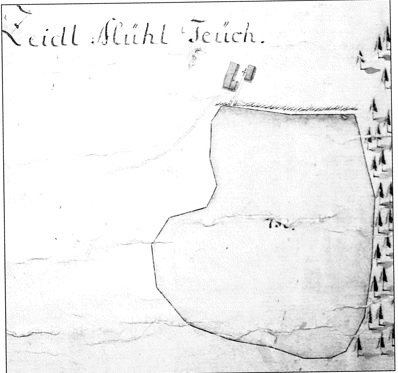 Zeidl Mühl Teüch.